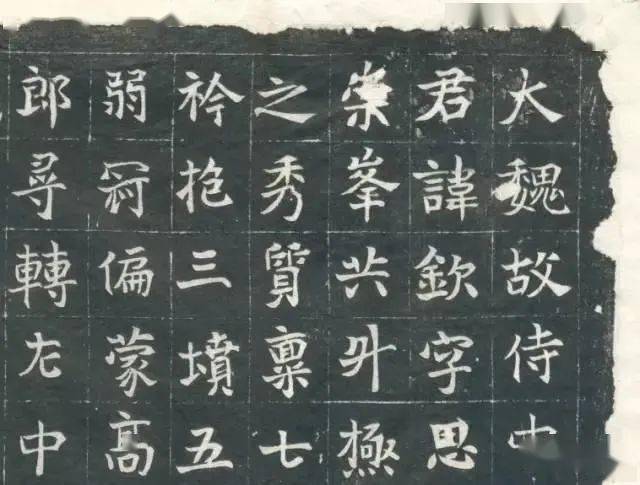 大魏故侍中
君諱欽字思
崇峯共升極
之秀質稟七
衿抱三墳五
弱冠偏蒙髙
郎尋轉左中